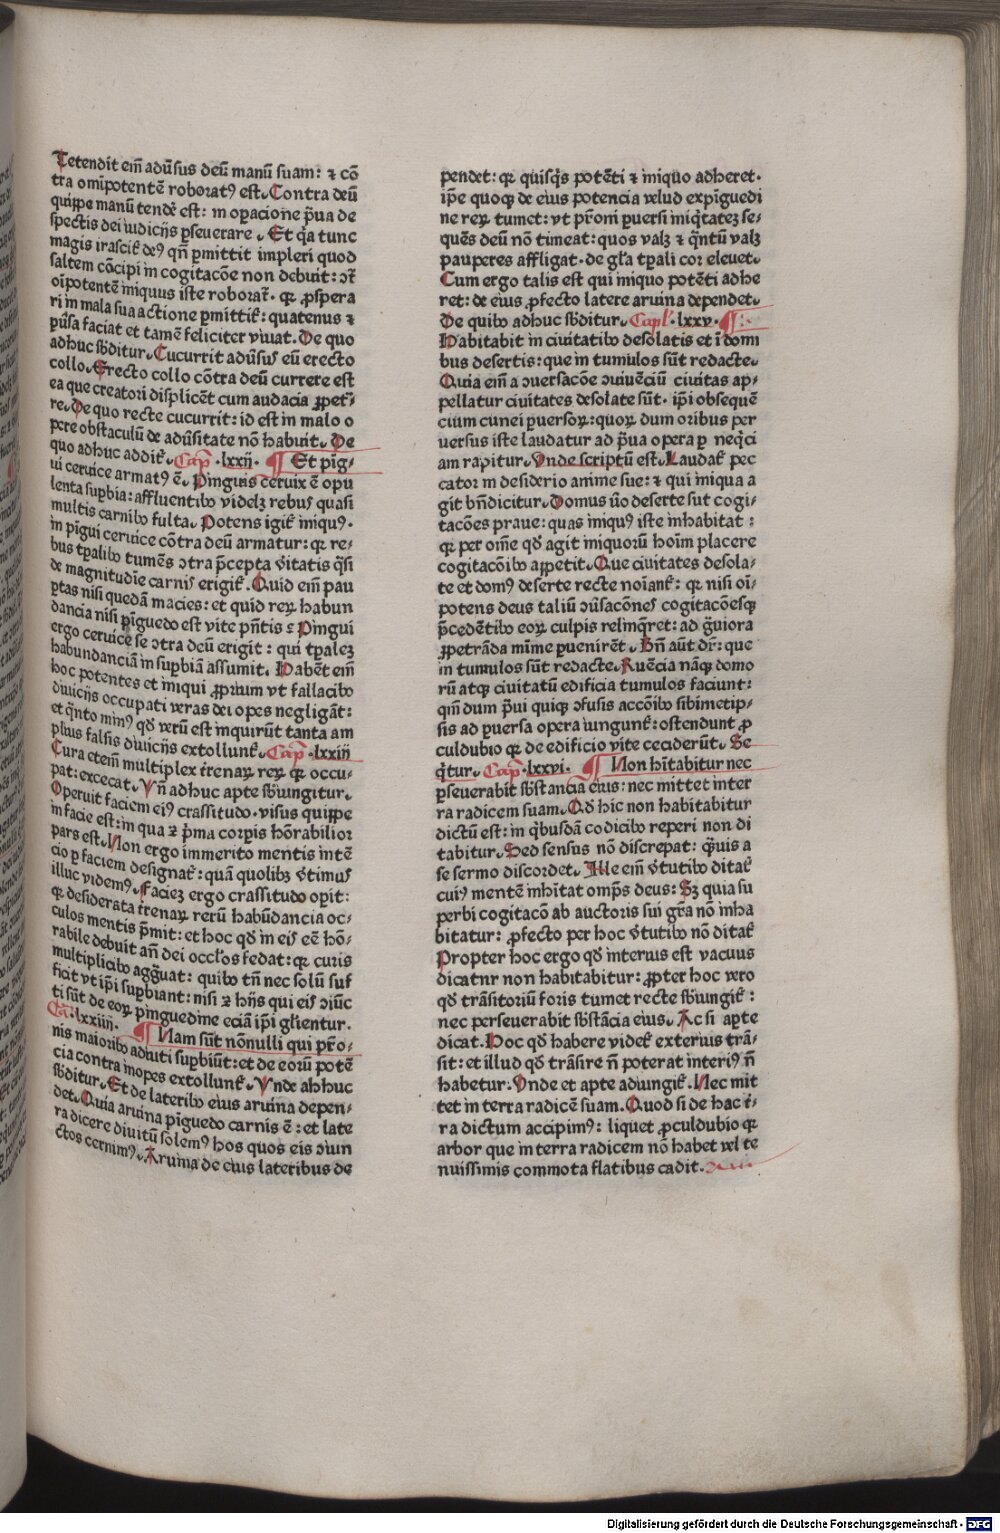 Tetendit em̄ adūsus deū manū suam: ⁊ cō
tra om̄ipotentē roboratꝰ est. Contra deū
quippe manū tendē est: in oꝑacione ꝑua de
spectis dei iudicijs ꝑseuerare. Et q̄a tunc
magis irascit᷑ deꝰ qn̄ ꝑmittit impleri quod
saltem cōcipi in cogitacōe non debuit: ↄt᷑
oīpotentē iniquus iste roborat᷑. qꝛ ꝓspera
ri in mala sua actione ꝑmittit᷑: quatenus ⁊
ꝑūsa faciat et tamē feliciter viuat. De quo
adhuc sb̄ditur. Cucurrit adūsus eū erecto
collo. Erecto collo cōtra deū currere est
ea que creatori displicēt cum audacia ꝓpet᷑
re. De quo recte cucurrit: id est in malo o
ꝑere obstaculū de adūsitate nō habuit. De
quo adhuc addit᷑. Cap̄ .lxxij. ¶ Et pīg-
ui ceruice armatꝰ ē. Pinguis ceruix ē opu
lenta suꝑbia: affluentibꝰ videlꝫ rebus quasi
multis carnibꝰ fulta. Potens igit᷑ iniqꝰ.
in pīgui ceruice cōtra deū armatur: qꝛ re-
bus tꝑalibꝰ tumēs ↄtra p̄cepta v̄itatis q̄si
de magnitudīe carnis erigit᷑. Quid em̄ pau
ꝑtas nisi quedā macies: et quid reꝝ habun
dancia nisi pīguedo est vite pn̄tis? Pīngui
ergo ceruice se ↄtra deū erigit: qui tꝑalez
habundanciā in suꝑbiā assumit. Habēt em̄
hoc potentes et iniqui ꝓprium vt fallacibꝰ
diuicijs occupati veras dei opes negligāt:
et q̄nto minꝰ qd̄ verū est inquirūt tanta am
plius falsis diuicijs extollunt᷑. Cap̄ .lxxiij
Cura etem̄ multiplex t̄renaꝝ reꝝ qꝛ occu-
pat: excecat. Vn̄ adhuc apte sb̄iungitur.
Operuit faciem eiꝰ crassitudo. visus quippe
in facie est: in qua ⁊ p̄ma corꝑis hōrabilior
pars est. Non ergo immerito mentis intē
cio ꝑ faciem designat᷑: quā quolibꝫ v̄timus
illuc videmꝰ. Faciez ergo crassitudo opit:
qꝛ desiderata t̄renaꝝ rerū habūdancia oc-
culos mentis p̄mit: et hoc qd̄ in eis eē hō-
rabile debuit an̄ dei occl̄os fedat: qꝛ curis
multiplicibꝰ agḡuat: quibꝰ tn̄ nec solū suf
ficit vt ip̄i suꝑbiant: nisi ⁊ hijs qui eis ↄiūc
ti sūt de eoꝝ pīnguedine eciā ip̄i gl̄ientur.
Ca᷑ .lxxiiij. ¶ Nam sūt nōnulli qui pr̄o-
nis maioribꝰ adiuti suꝑbiūt: et de eorū potē
cia contra inopes extollunt᷑. Vnde ahhuc
sb̄ditur. Et de lateribꝰ eius aruina depen-
det. Quia aruina pīguedo carnis ē: et late
ra dicere diuitū solemꝰ hos quos eis ↄiun
ctos cernimꝰ. Aruina de eius lateribus de
pendet: qꝛ quisq̄s potēti ⁊ iniquo adheret.
ip̄e quoqꝫ de eius potencia velud ex pīguedi
ne reꝝ tumet: vt pr̄oni ꝑuersi iniq̄tatez se-
quēs deū nō timeat: quos valꝫ ⁊ q̄ntū valꝫ
pauperes affligat. de gl̄a tꝑali cor eleuet.
Cum ergo talis est qui iniquo potēti adhe
ret: de eius ꝓfecto latere aruina dependet.
De quibꝰ adhuc sb̄ditur. Capl᷑ .lxxv. ¶
Habitabit in ciuitatibꝰ desolatis et ī domi
bus desertis: que in tumulos sūt redacte.
Quia em̄ a ↄuersacōe ↄuiuēciū ciuitas ap-
pellatur ciuitates desolate sūt. ip̄i obsequē
cium cunei ꝑuersoꝝ: quoꝝ dum oribus per
uersus iste laudatur ad ꝑua opera ꝑ neq̄ci
am rapitur. Vnde scriptū est. Laudat᷑ pec
cator in desiderio anime sue: ⁊ qui iniqua a
git bn̄dicitur. Domus ūo deserte sut cogi-
tacōes praue: quas iniqꝰ iste inhabitat:
qꝛ per om̄e qd̄ agit iniquorū hoīm placere
cogitacōibꝰ appetit. Que ciuitates desola-
te et domꝰ deserte recte noīant᷑: qꝛ nisi oī-
potens deus taliū ↄūsacōnes cogitacōesqꝫ
p̄cedētibꝰ eoꝝ culpis relinq̄ret: ad ḡuiora
ꝓpetrāda mīme ꝑuenirēt. Bn̄ aūt dr̄: que
in tumulos sūt redacte. Ruēcia nāqꝫ domo
rū atqꝫ ciuitatū edificia tumulos faciunt:
qm̄ dum ꝑui quiqꝫ ↄfusis accōibꝰ sibimetip-
sis ad ꝑuersa opera iungunt᷑: ostendunt ꝓ
culdubio qꝛ de edificio vite ceciderūt. Se
q̄tur. Cap̄ .lxxvi. ¶ Non hītabitur nec
ꝑseuerabit sb̄stancia eius: nec mittet inter
ra radicem suam. Qd̄ hic non habitabitur
dictū est: in q̄busdā codicibꝰ reperi non di
tabitur. Sed sensus nō discrepat: q̄uis a
se sermo discordet. Ille em̄ v̄tutibꝰ ditat᷑
cuiꝰ mentē inhītat omp̄s deus: Sꝫ quia su
perbi cogitacō ab auctoris sui gr̄a nō inha
bitatur: ꝓfecto per hoc v̄tutibꝰ nō ditat᷑
Propter hoc ergo qd̄ interius est vacuus
dicatnr non habitabitur: ꝓpter hoc vero
qd̄ trāsitoriū foris tumet recte sb̄iungit᷑:
nec perseuerabit sb̄stācia eius. Ac si apte
dicat. Hoc qd̄ habere videt᷑ exterius trā-
sit: et illud qd̄ trāsire n̄ poterat interiꝰ n̄
habetur. Vnde et apte adiungit᷑. Nec mit
tet in terra radicē suam. Quod si de hac t̄-
ra dictum accipimꝰ: liquet ꝓculdubio qꝛ
arbor que in terra radicem nō habet vel te
nuissimis commota flatibus cadit.
Digitalisierung gefördert durch die Deutsche Forschungsgemeinschaft - DFG